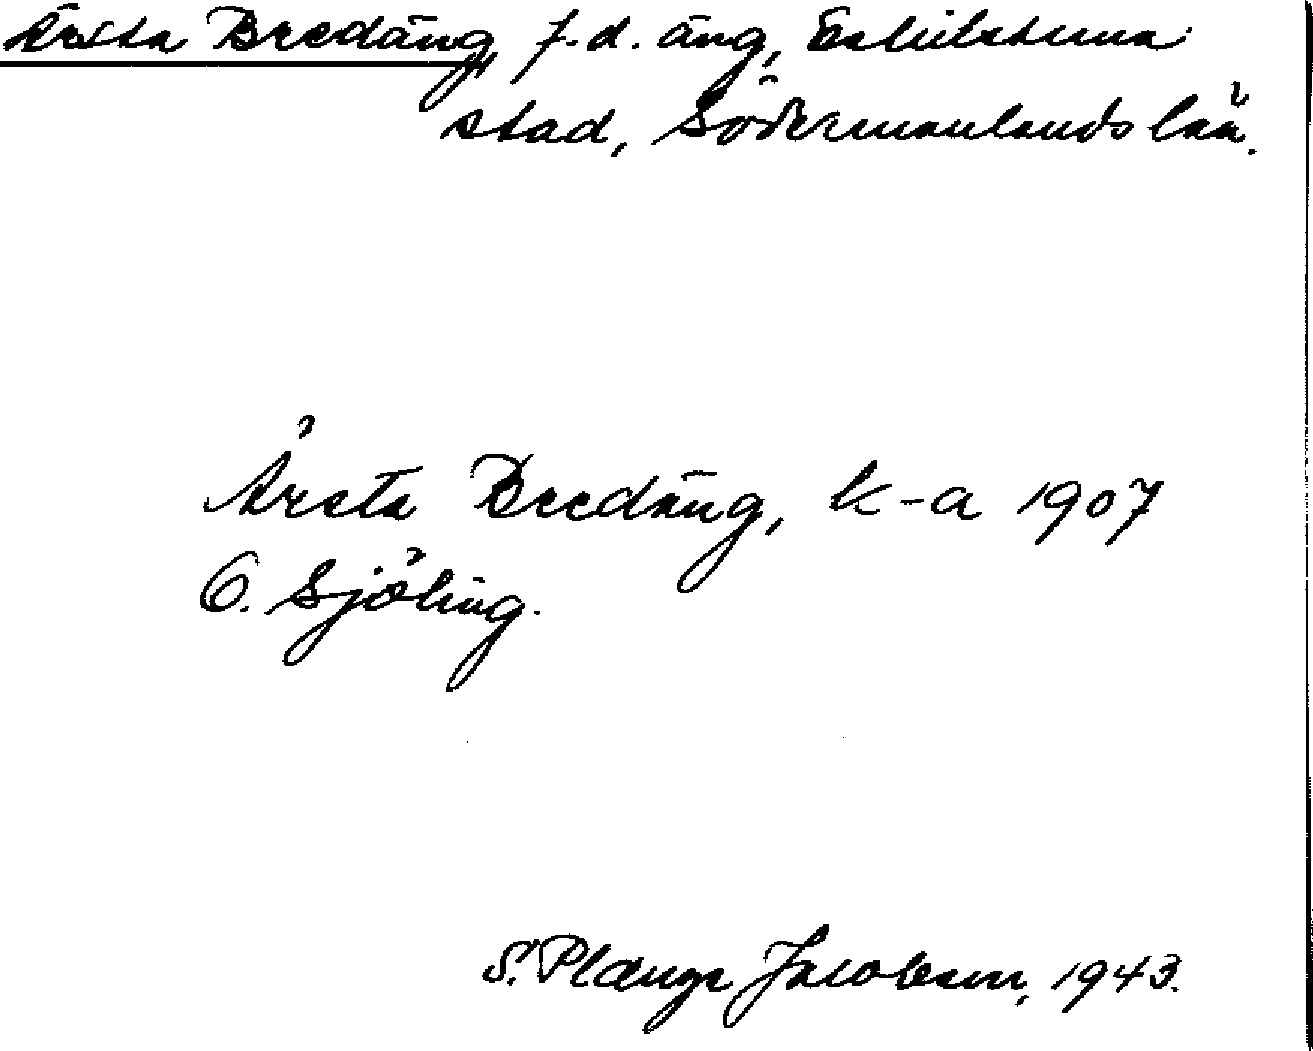 Årsta Bredäng, f.d. äng, Eskilstuna
stad, Södermanlands län.
Årsta Bredäng, k-a 1907
O. Sjöling.
S. Jacobson, 1943.